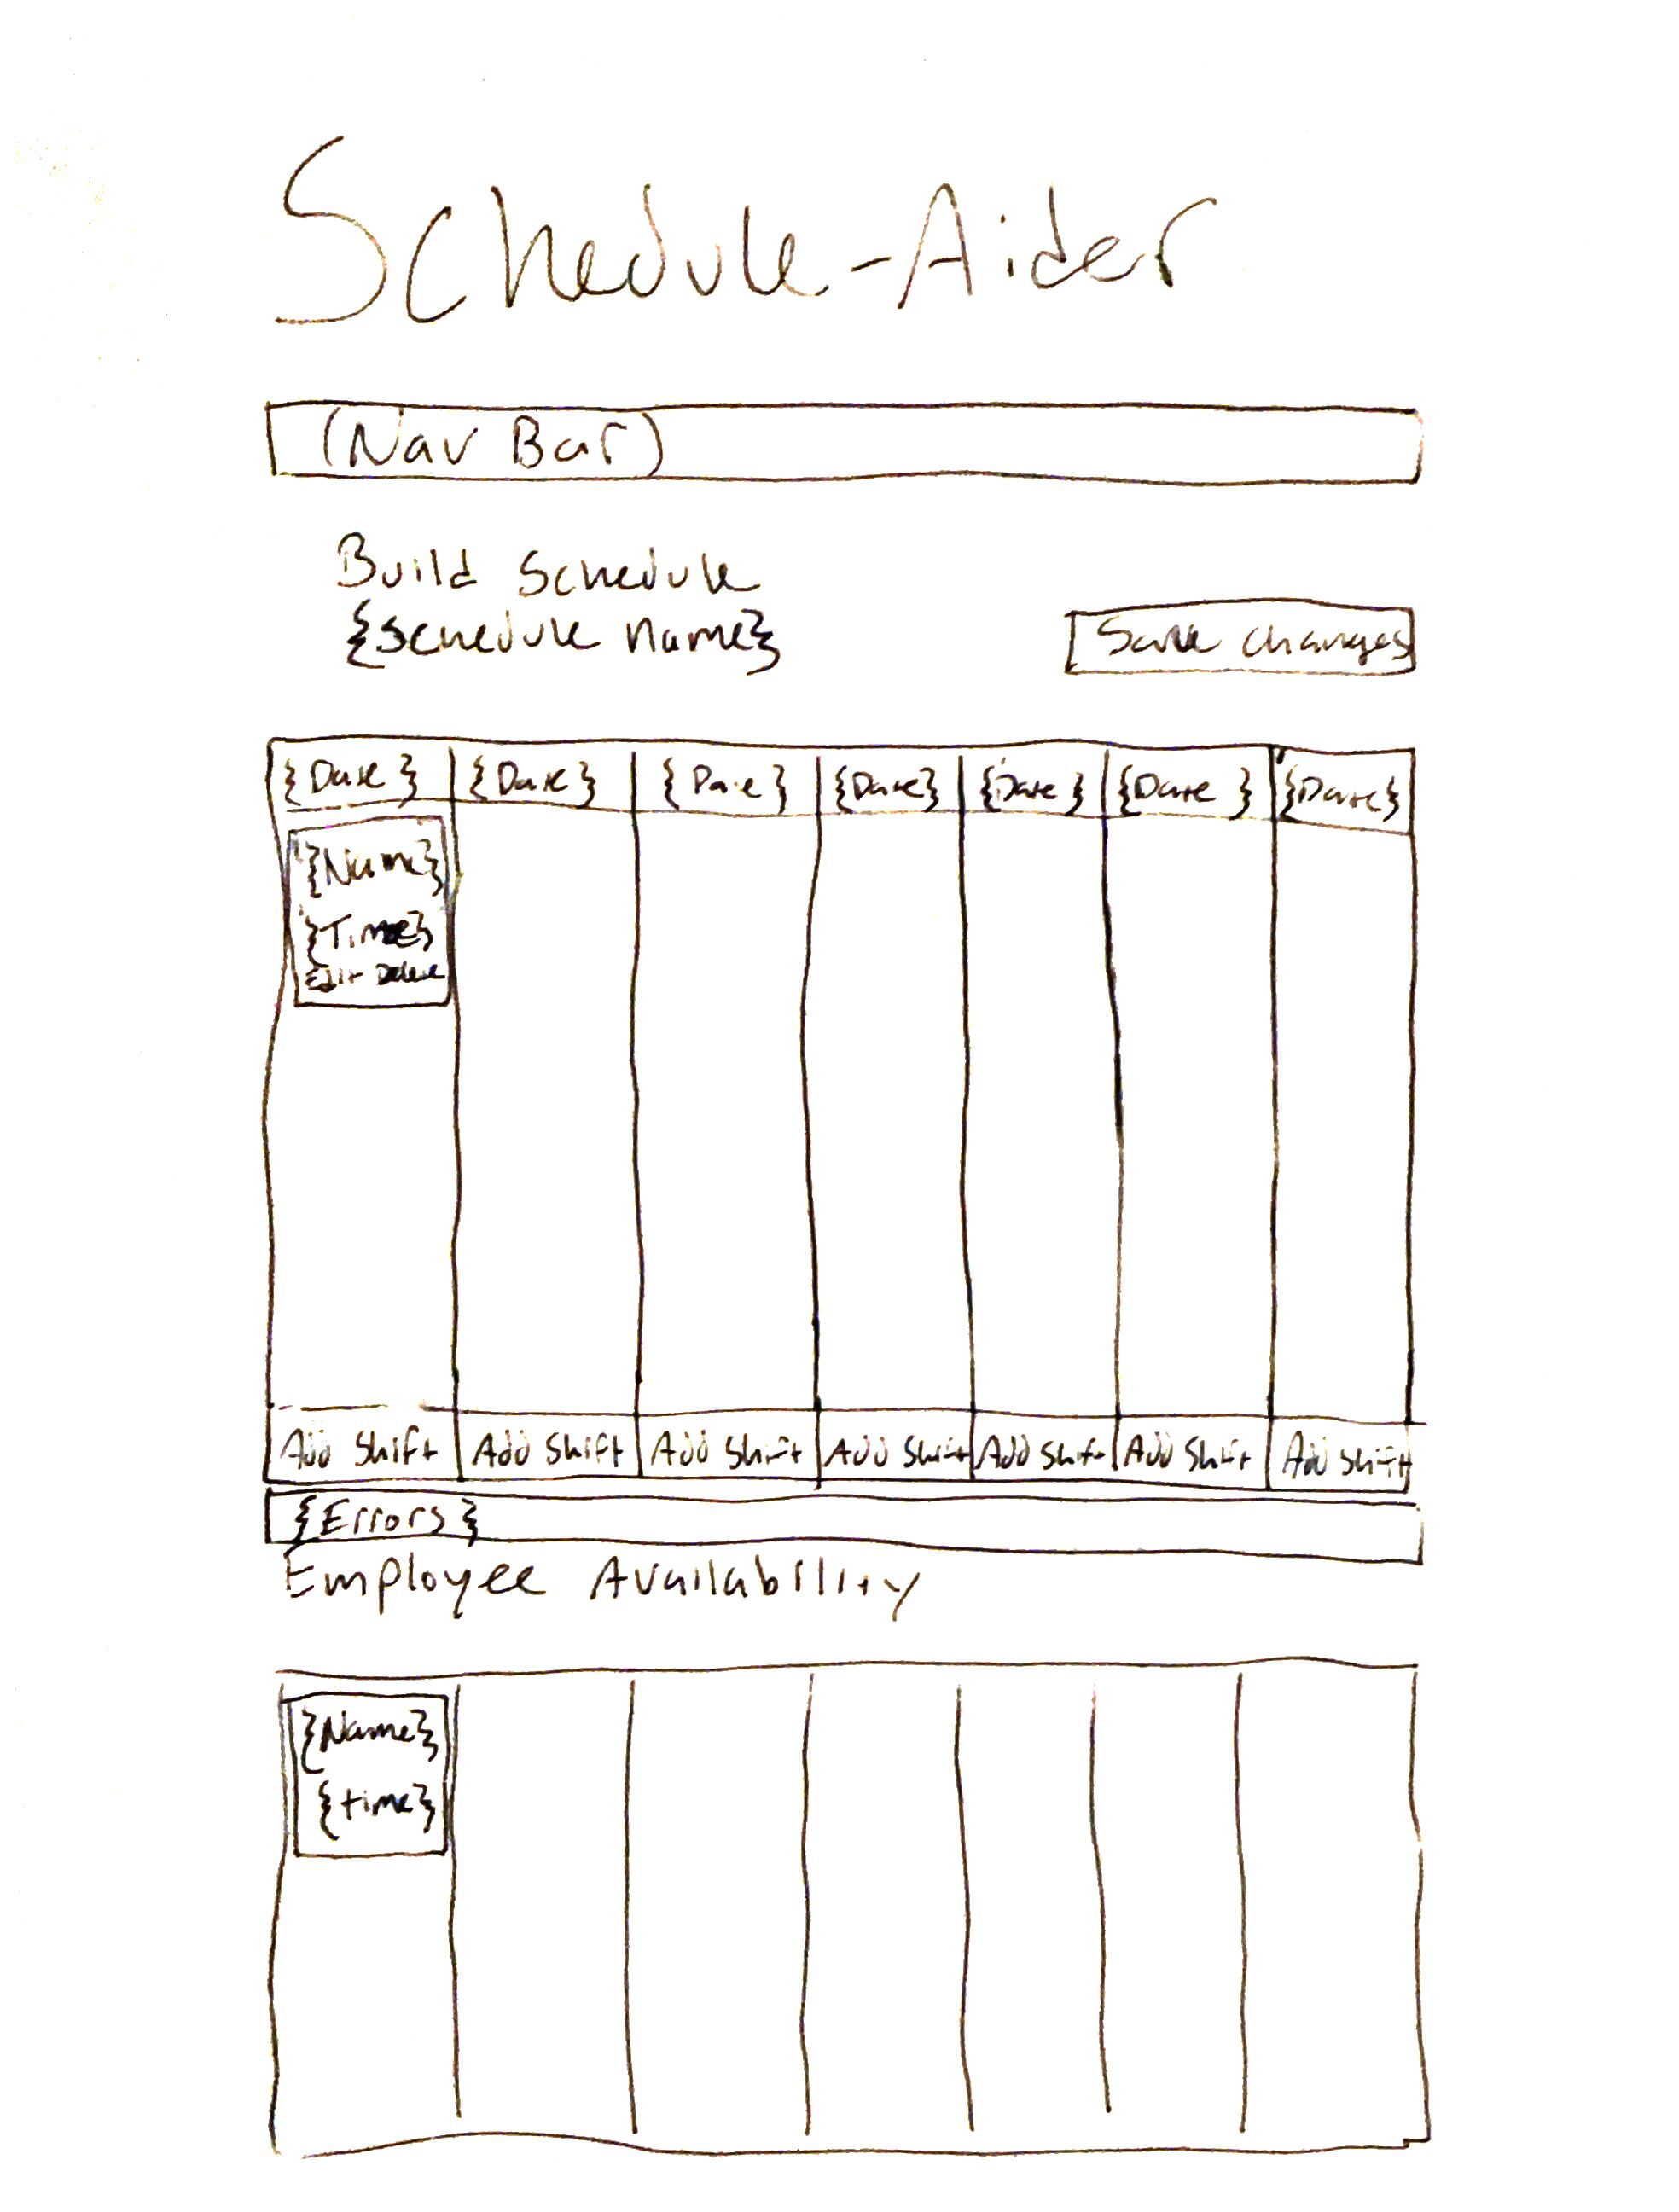 Schedule-Aider
(Nav Bar)
Build Schedule
{Schedule Name}
Save Changes
{Date} {Date} {Date} {Date} {Date} {Date} {Date}
{Name}
{Time}
Edit Delete
Add Shift Add Shift Add Shift Add Shift Add Shift Add Shift Add Shift
{Errors}
Employee Availability
{Name}
{time}